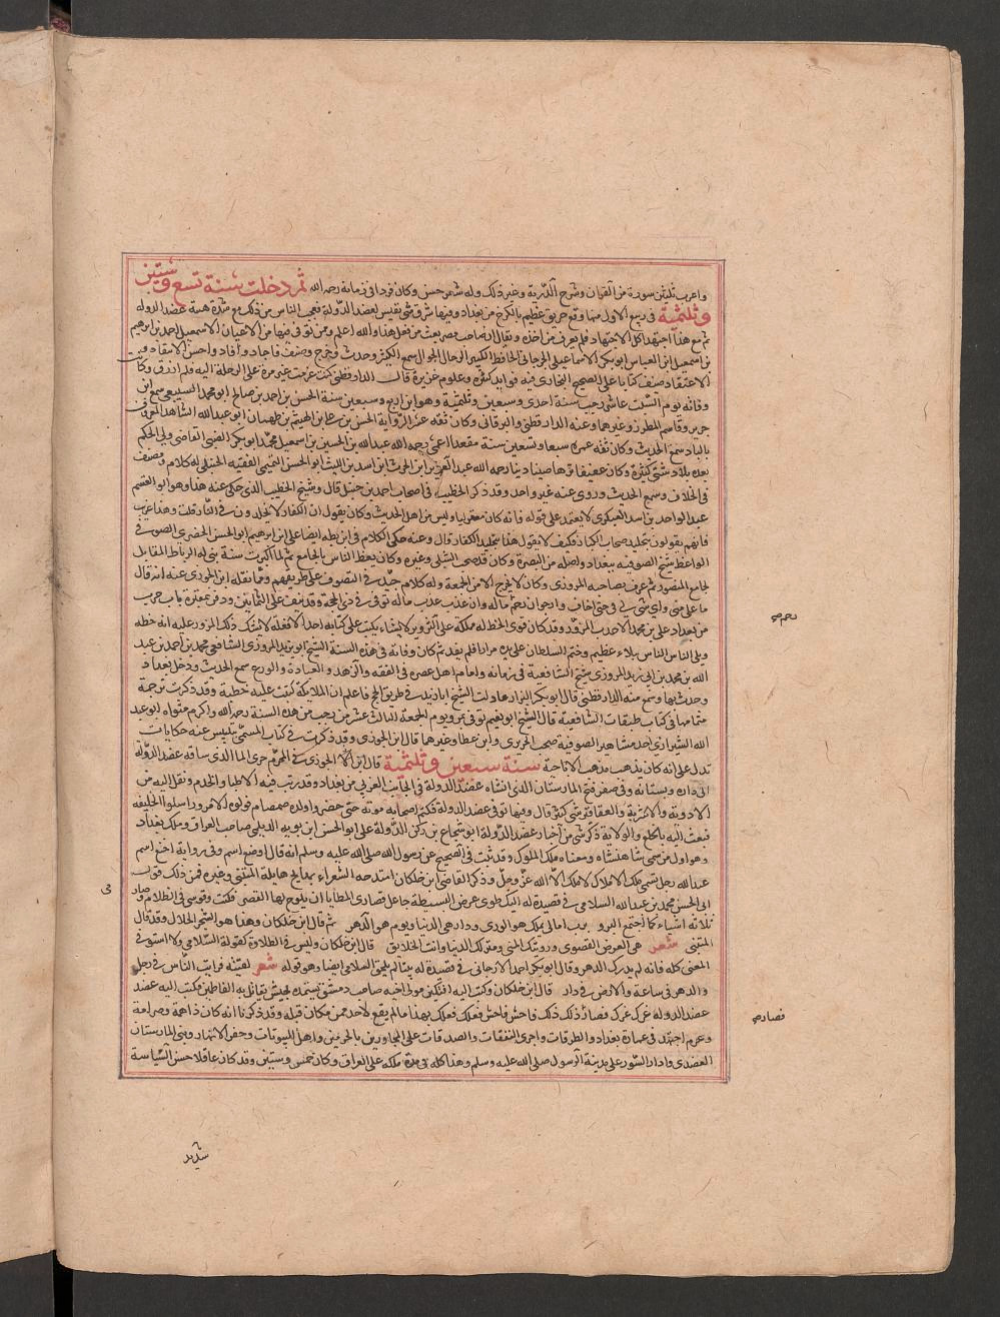 واعرب ثلثين سورة من القران وشرح الدريدية وغير ذلك وله شعر حسن وكان فردا في زمانه رحمه الله ثم دخلت سنة تسع وستين
وثلثمئة في ربيع الاول منها وقع حريق عظيم بالكرخ من بغداد وفيها سرق شي نفيس لعضد الدولة فعجب الناس من ذلك مع شدة هيبة عضد الدولة
ثم مع هذا اجتهدوا كل الاجتهاد فلم يعرف من اخذه ويقال ان صاحب مصر بعث من فعل هذا والله اعلم وممن توفي فيها من الاعيان الاسمعيلي احمد بن ابرهيم
بن اسمعيل ابن العباس ابو بكر الاسماعيلي الجرجاني الحافظ الكبير الرحال الجوال سمع الكثير وحدث وخرج وصنف فاجاد وافاد واحسن الانتقاد و
الاعتقاد صنف كتابا على الصحيح البخاري فيه فوايد كثيرة وعلوم غزيرة قال الدارقطني كنت عزمت غير مرة على الرحلة اليه فلم ارزق وكانت
وفاته يوم السبت عاشر رجب سنة احدى وسبعين وثلثمئة وهو ابن اربع وسبعين سنة الحسن بن احمد بن صالح ابو محمد السبيعي سمع ابن
جرير وقاسم المطرز وغيرهما وعنه الدارقطني والبرقاني وكان ثقة عسر الرواية الحسن بن علي ابن الهيثم بن طهمان ابو عبد الله الشاهد المعروف
بالباد سمع الحديث وكان ثقة عمره سبعا وتسعين سنة مقعدا اعمى رحمه الله عبد الله بن الحسين بن اسمعيل بن محمد ابو بكر الضبي القاضي ولي الحكم
بعده بلاد شتى كثيرة وكان عفيفا نزها صينا دينا رحمه الله عبد العزيز ابن الحرث ابن اسد بن الليث ابو الحسن التميمي الفقيه الحنبلي له كلام ومصنف
في الخلاف وسمع الحديث وروى عنه غير واحد وقد ذكر الخطيب في اصحاب احمد بن حنبل قال وشيخ الخطيب الذي حكى عنه هذا وهو ابو القسم
عبد الواحد بن اسد العكبري لا يعتمد على قوله فانه كان معتزليا وليس من اهل الحديث وكان يقول ان الكفار لا يخلدون في النار قلت وهذا غريب
فانهم يقولون بتخليد صحاب الكبائر فكيف لا يقول هذا بتخليد الكفار قال وعنه حكى الكلام في ابن بطه ايضا على ابن ابرهيم ابو الحسن الحصري الصوفي
الواعظ شيخ الصوفيه ببغداد واصله من البصرة وكان قد صحب الشبلي وغيره وكان يعظ الناس بالجامع ثم لما كبرت سنه بني له الرباط المقابل
لجامع المنصور ثم عرف بصاحبه المروزي وكان لا يخرج الا من الجمعة وله كلام جيد في التصوف على طريقتهم ومما نقله ابن الجوزي عنه انه قال
ما علي مني واي شي لي في حتى اخاف وارجو ان رحم ماله وان عذب عذب ماله توفي في ذي الحجة وقد نيف على الثمانين ودفن بمقبرة باب حرب
من بغداد علي بن محمد الاحدب المزور وقد كان قوي الخط له ملكة على التزوير لا يشاء يكتب على كتابة احد الا فعله لا يشك ذلك المزور عليه انه خطه
وبلي الناس ببلاء عظيم وختم السلطان على يده مرارا فلم يفد ثم كان وفاته في هذه السنة الشيخ ابو زيد المروزي الشافعي محمد بن احمد بن عبد
الله بن محمد بن ابي زيد المروزي شيخ الشافعية في زمانه وامام اهل عصره في الفقه والزهد والعبادة والورع سمع الحديث ودخل بغداد
وحدث بها وسمع منه الدارقطني قال ابو بكر البزار عادلت الشيخ ابا زيد في طريق الحج فما علم ان الملايكة كتبت عليه خطية وقد ذكرت ترجمة
متمامها في كتاب طبقات الشافعية قال الشيخ ابو نعيم توفي بمرو يوم الجمعة الثالث عشر من رجب من هذه السنة رحمه الله واكرم مثواه ابو عبد
الله الشيرازي احد مشاهير الصوفية صحب الجريري وابن عطا وغيرهما قال ابن الجوزي وقد ذكرت في كتاب المسمى بتلبيس عنه حكايات
تدل على انه كان يذهب مذهب الاباحية سنة سبعين وثلثمئة قال ابن الجوزي في المحرم جرى الما الذي ساقه عضد الدولة
الى داره وبستانه وفي صفر فتح المارستان الذي انشاه عضد الدولة في الجانب الغربي من بغداد وقد رتب فيه الاطبا والخدم ونقل اليه من
الادوية والاشربة والعقاقير شي كثير قال وفيها توفي عضد الدولة فكتم اصحابه موته حتى حضر ولده صمصام فولوه الامر وراسلوا الخليفه
فبعث اليه بالخلع والولاية ذكر شي من اخبار عضد الدولة ابو شجاع بن ركن الدولة علي ابو الحسن ابن بويه الديلمي صاحب العراق وملك بغداد
وهو اول من سمي شاهنشاه ومعناه ملك الملوك وقد ثبت في الصحيح عن رسول الله صلى الله عليه وسلم انه قال اوضع اسم وفي رواية اخنع اسم
عبد الله رجل تسمى ملك الاملاك لا ملك الا الله عز وجل وذكر القاضي ابن خلكان امتدحه الشعراء بمدايح هايلة المتنبي وغيره فمن ذلك قول
ابي الحسن محمد بن عبد الله السلامي في قصيدة له اليك طوى عرض البسيطة جاعل قصارى المطايا ان يلوح لها القصر فكنت وقوسي في الظلام وصار
ثلاثه اشياء كما اجتمع النسر وبشرت امالي بملك هو الورى ودار هي الدنيا ويوم هو الدهر ثم قال ابن خلكان وهذا هو السحر الحلال وقد قال
المتنبي شعر هي الغرض القصوى ورويتك المنى ومنزلك الدنيا وانت الخلايق قال ابن خلكان وليس في الطلاوة كقولة السلامي ولا استوفى
المعنى كله فانه لم يدرك الدهر وقال ابو بكر احمد الارجاني في قصيدة له بيتا لم يلحق السلامي ايضا وهو قوله شعر لقيته فرايت الناس في رجل
والدهر في ساعة والارض في دار قال ابن خلكان وكتب اليه افتكين مولى اخيه صاحب دمشق يستمده بجيش يقاتل به الفاطميين فكتب اليه عضد
عضد الدوله غرك عزك فصار ذلك ذلك فاخش فاحش فعلك فعلك بهذا ما لم يقع لاحد ممن كان قبله وقد ذكرنا انه كان ذا همة وصرامة
وعزم اجتهد في عمارة بغداد والطرقات واجرى النفقات والصدقات على المجاورين بالحرمين واهل البيوتات وحفر الانهار وبنى المارستان
العضدي وادار السور على مدينة الرسول صلى الله عليه وسلم وهذا كله في مدة ملكه على العراق وكان خمس وستين وقد كان عاقلا حسن السياسة
رحم صح
في
قصار صح
شديد